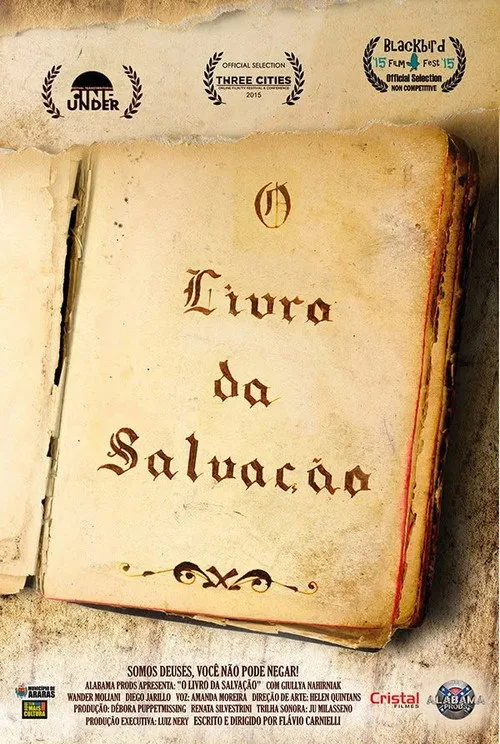 CINE
UNDER
OFFICIAL SELECTION
THREE CITIES
ONLINE FILM/TV FESTIVAL & CONFERENCE
2015
BLackbird
'15 FiLM FeST '15
Official Selection
NON COMPETITIVE
O
Livro
da
Salvação
SOMOS DEUSES, VOCÊ NÃO PODE NEGAR!
ALABAMA PRODS APRESENTA: "O LIVRO DA SALVAÇÃO" COM GIULLYA NAHIRNIAK
WANDER MOLIANI DIEGO JARILLO VOZ: AMANDA MOREIRA DIREÇÃO DE ARTE: HELEN QUINTANS
PRODUÇÃO: DÉBORA PUPPETMISSING RENATA SILVESTRINI TRILHA SONORA: JU MILASSENO
PRODUÇÃO EXECUTIVA: LUIZ NERY ESCRITO E DIRIGIDO POR FLÁVIO CARNIELLI
MUNICÍPIO DE
ARARAS
MAIS
CULTURA
Cristal
FILMES
ALABAMA
PRODS